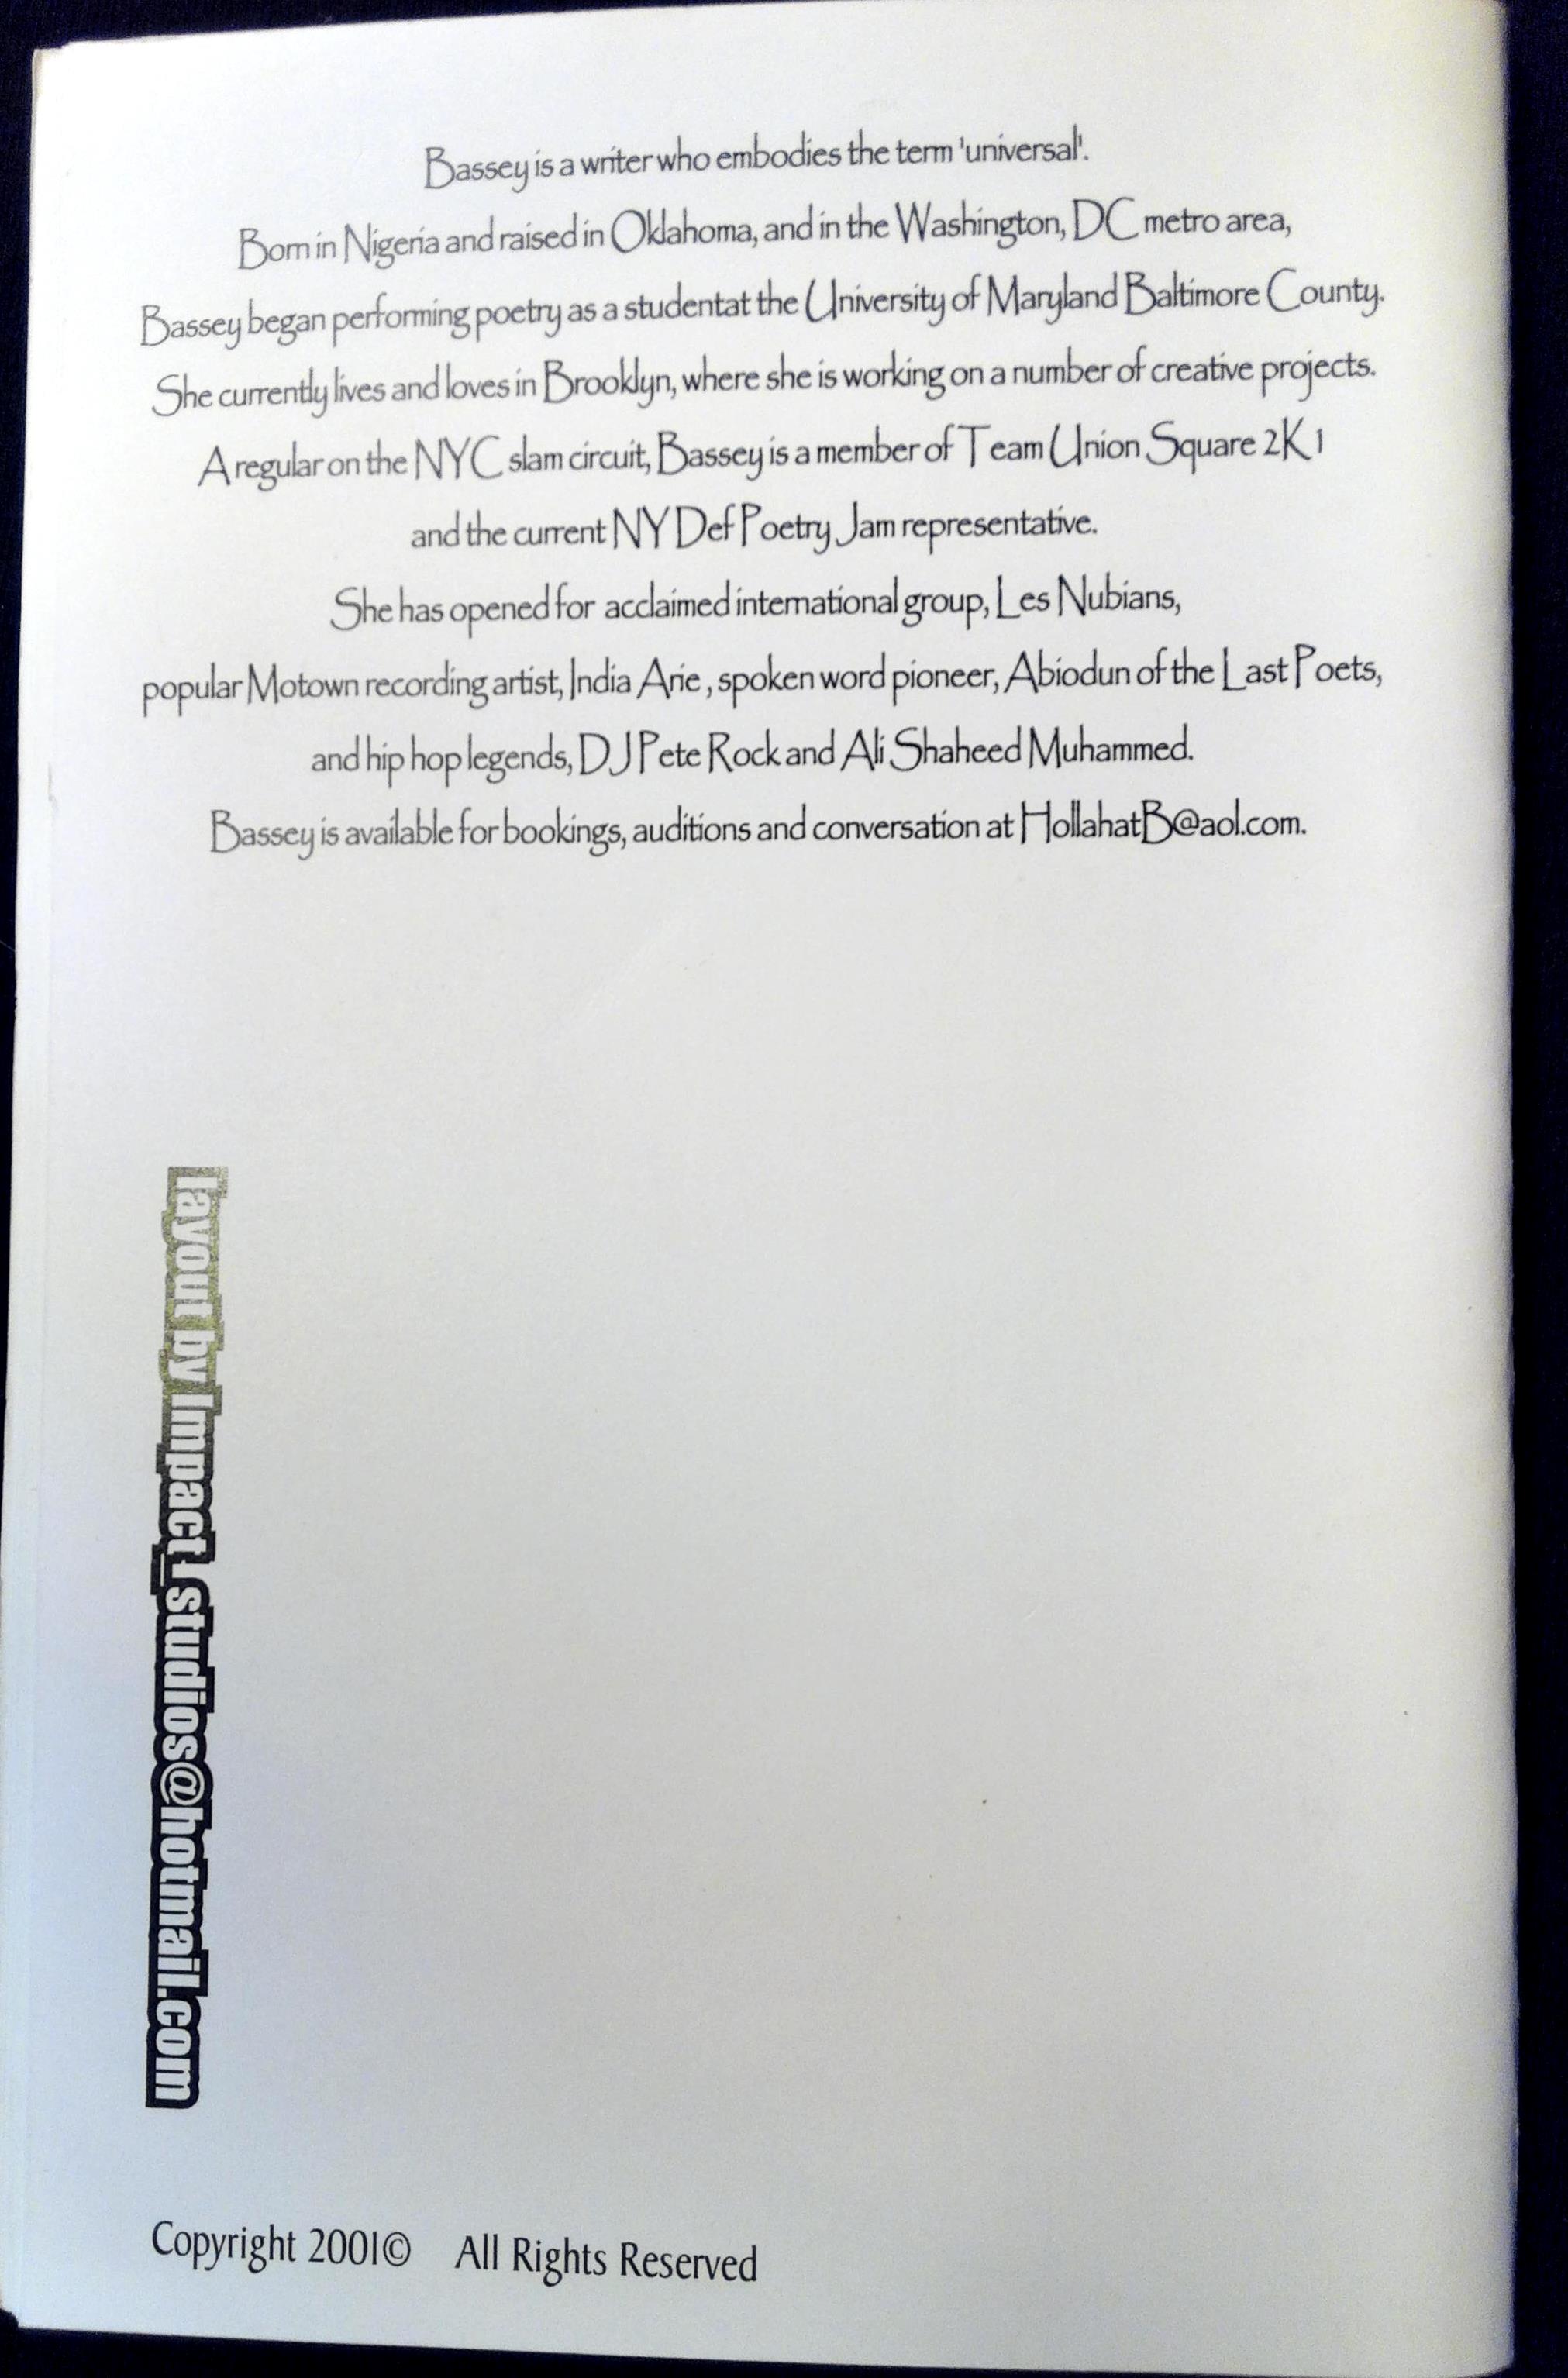 Bassey is a writer who embodies the term 'universal'.
Born in Nigeria and raised in Oklahoma, and in the Washington, DC metro area,
Bassey began performing poetry as a studentat the University of Maryland Baltimore County.
She currently lives and loves in Brooklyn, where she is working on a number of creative projects.
A regular on the NYC slam circuit, Bassey is a member of Team Union Square 2K1
and the current NY Def Poetry Jam representative.
She has opened for acclaimed international group, Les Nubians,
popular Motown recording artist, India Arie, spoken word pioneer, Abiodun of the Last Poets,
and hip hop legends, DJ Pete Rock and Ali Shaheed Muhammed.
Bassey is available for bookings, auditions and conversation at HollahatB@aol.com.
layout by Impact_studios@hotmail.com
Copyright 2001© All Rights Reserved